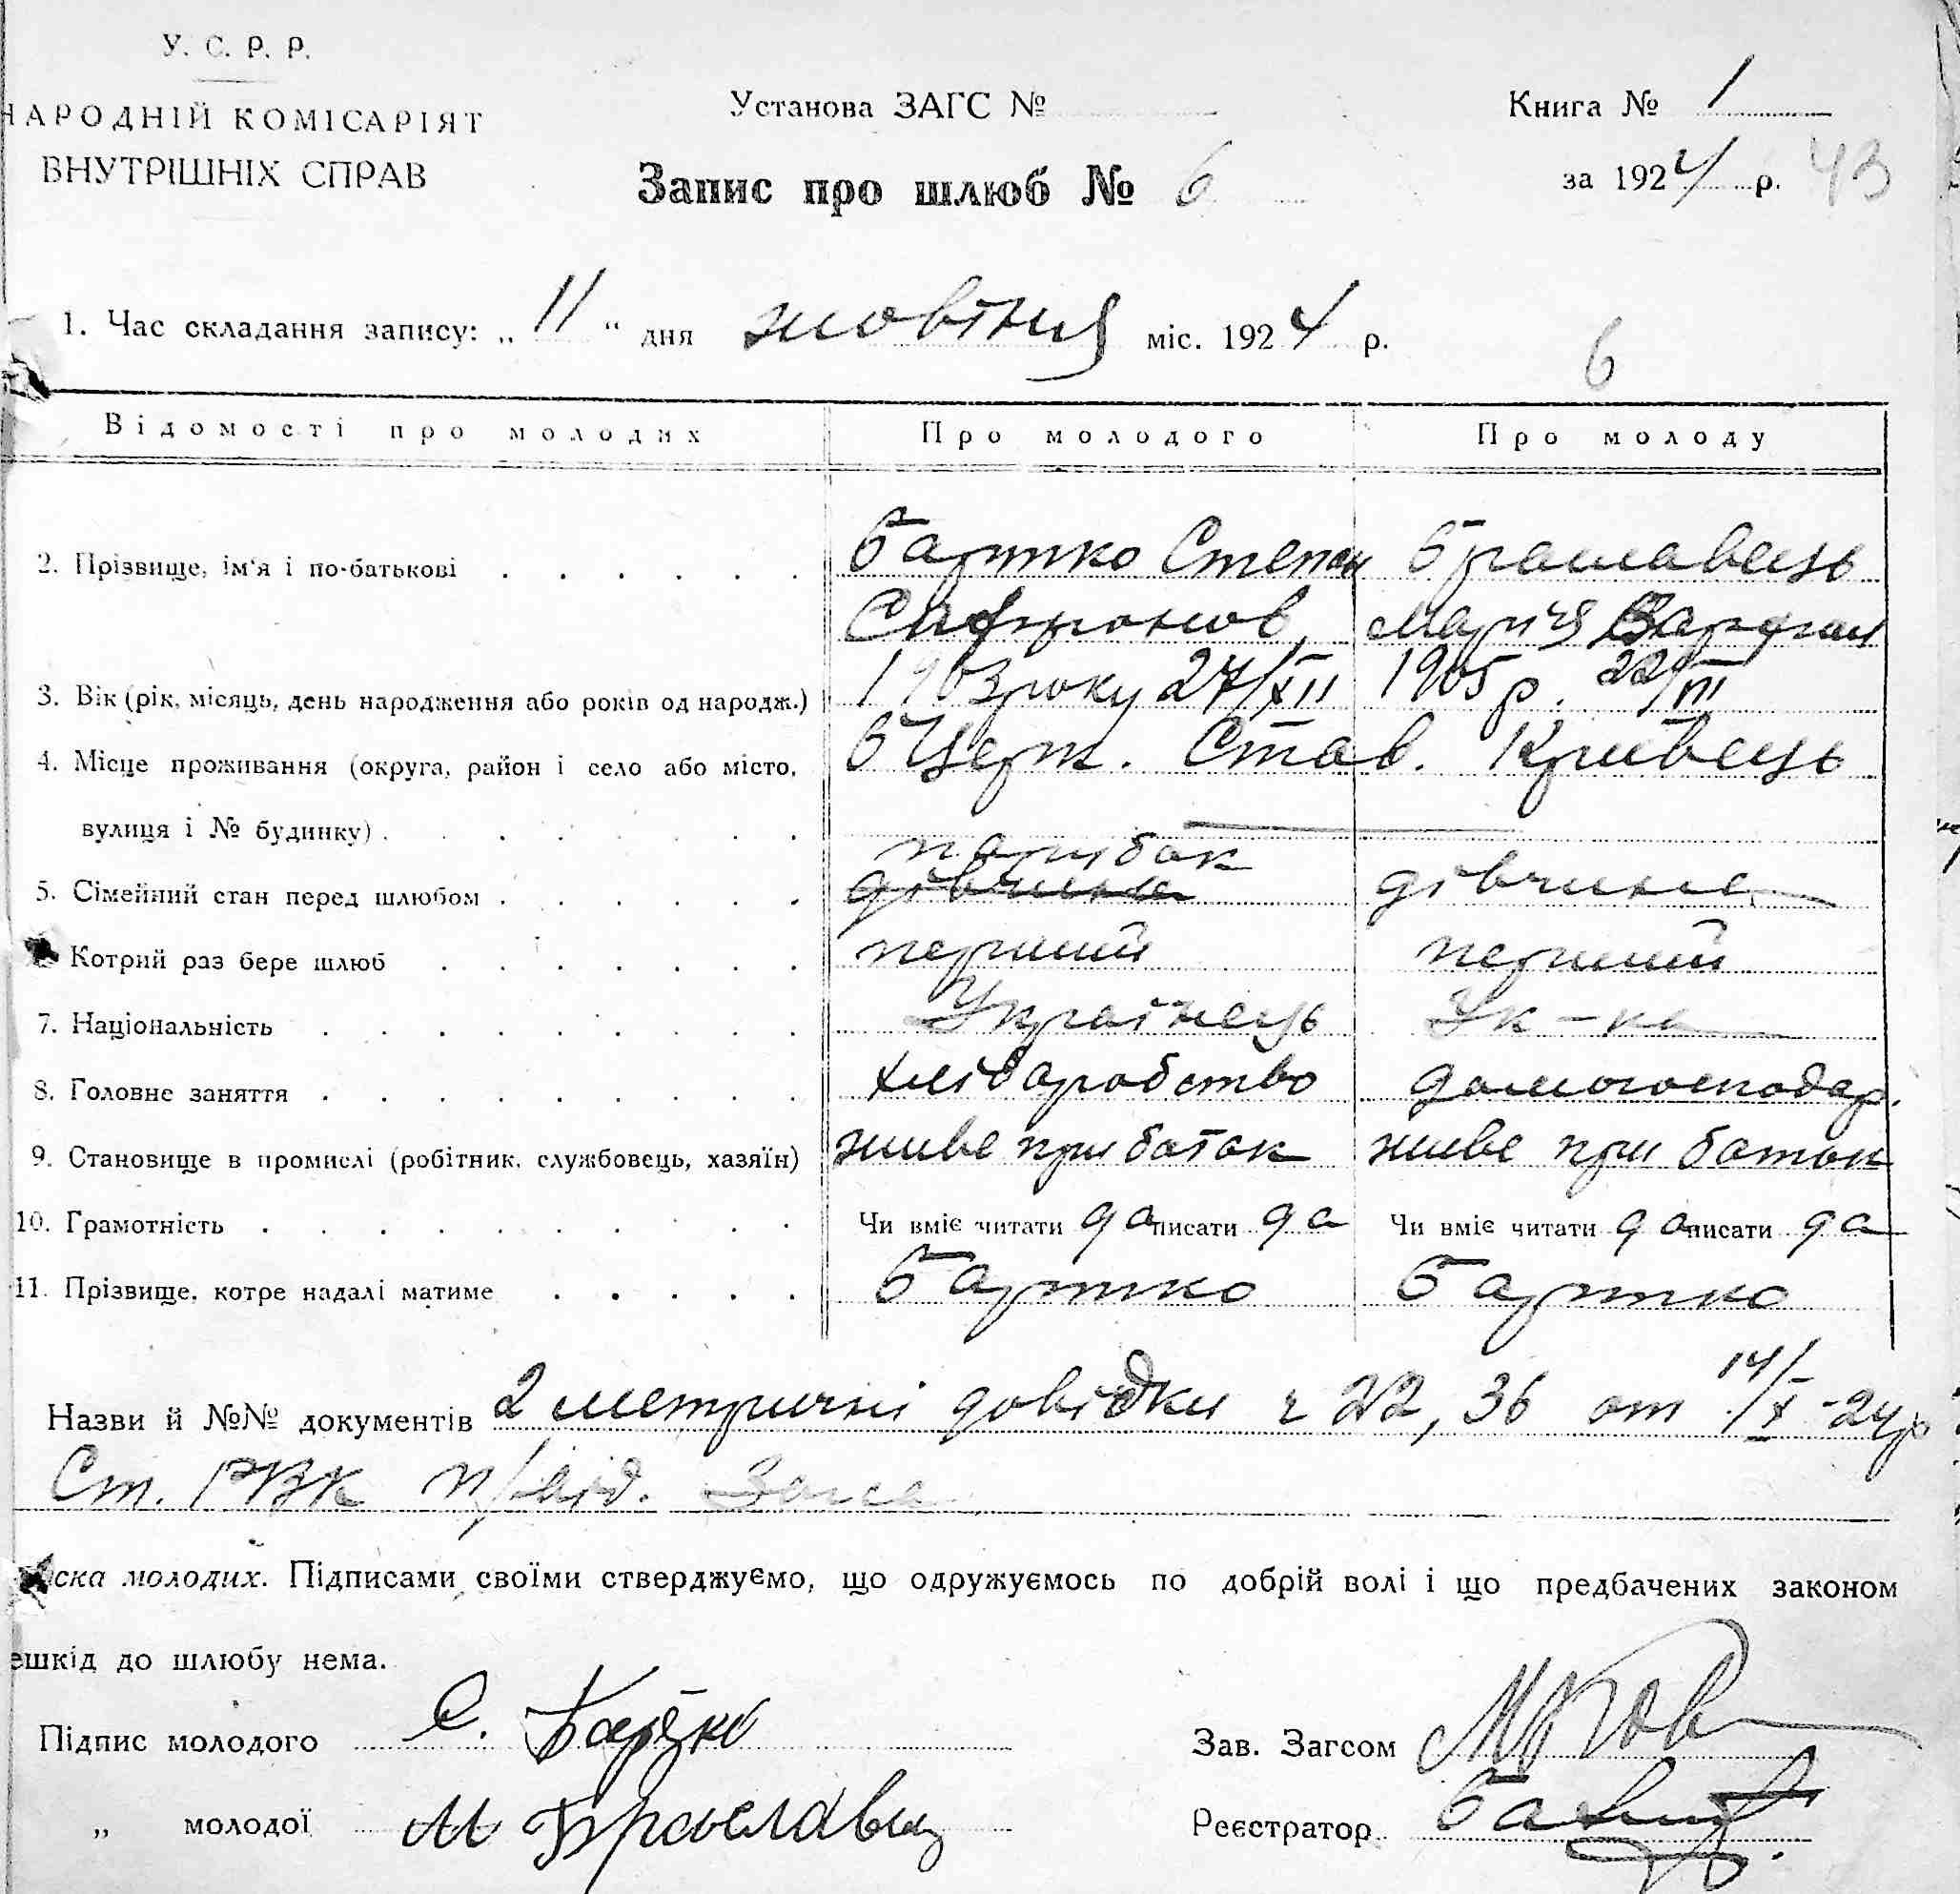 У. С. Р. Р.
НАРОДНІЙ КОМІСАРІЯТ
ВНУТРІШНІХ СПРАВ
Установа ЗАГС №
Запис про шлюб № 6
Книга № 1
за 1924 р. 43
1. Час складання запису: „ 11 “ дня жовтня міс. 1924 р.
6
Відомості про молодих Про молодого Про молоду
2. Прізвище, ім'я і по-батькові Бартко Степан Браславець
Сафронов, Марія
3. Вік (рік, місяць, день народження або років од народж.) 1903 року 27/XII 1905 р. 22/III
4. Місце проживання (округа, район і село або місто, БЦерк. Став. Кривець
вулиця і № будинку)
парубок
5. Сімейний стан перед шлюбом дівчина дівчина
Котрий раз бере шлюб перший перший
7. Національність Українець Ук-ка
8. Головне заняття хліборобство домогосподар.
9. Становище в промислі (робітник, службовець, хазяїн) живе при батьк живе при батьк
10. Грамотність Чи вміє читати да писати да Чи вміє читати да писати да
11. Прізвище, котре надалі матиме Бартко Бартко
Назви й №№ документів 2 метричні довідки ч 22, 36 от 14/X-24 р
Ст. РВК п/від. Загса
ска молодих. Підписами своїми стверджуємо, що одружуємось по добрій волі і що предбачених законом
ешкід до шлюбу нема.
Підпис молодого С. Бартко
Зав. Загсом
„ молодої М Браславец
Реєстратор